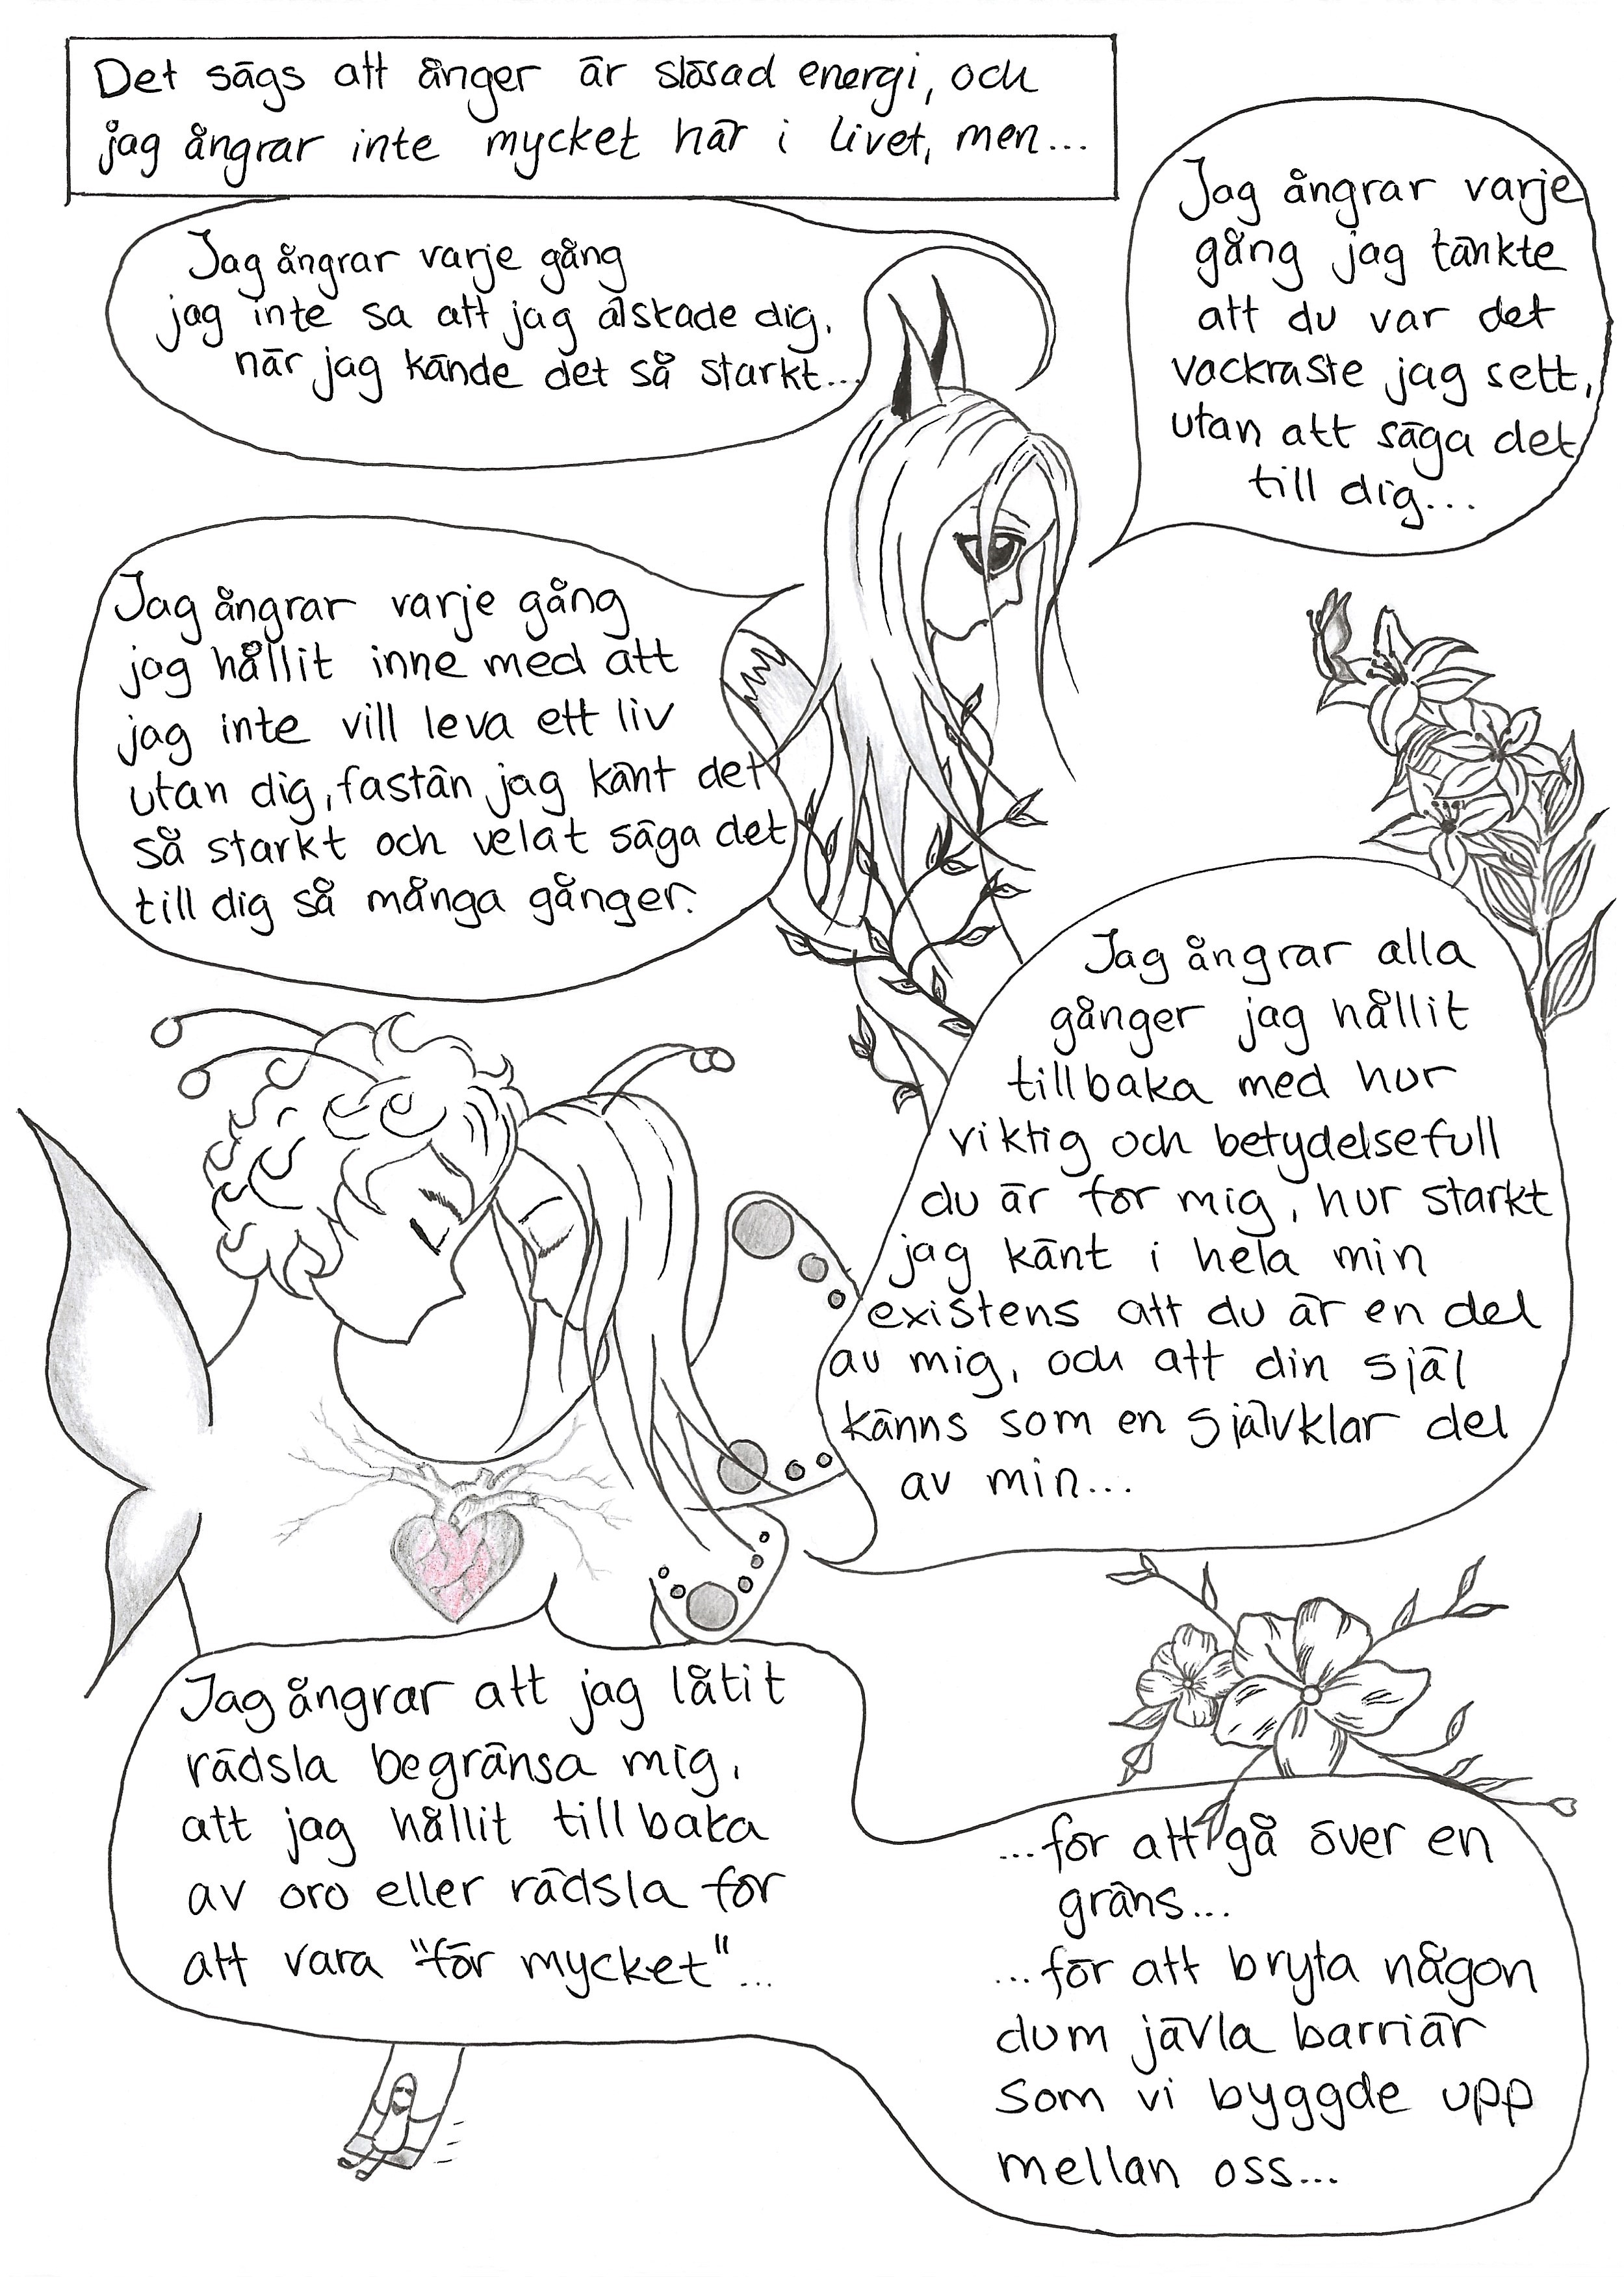 Det sägs att ånger är slösad energi, och
jag ångrar inte mycket här i livet, men...
Jag ångrar varje gång
jag inte sa att jag älskade dig,
när jag kände det så starkt...
Jag ångrar varje
gång jag tänkte
att du var det
vackraste jag sett,
utan att säga det
till dig...
Jag ångrar varje gång
jag hållit inne med att
jag inte vill leva ett liv
utan dig, fastän jag känt det
så starkt och velat säga det
till dig så många gånger.
Jag ångrar alla
gånger jag hållit
tillbaka med hur
viktig och betydelsefull
du är för mig, hur starkt
jag känt i hela min
existens att du är en del
av mig, och att din själ
känns som en självklar del
av min...
Jag ångrar att jag låtit
rädsla begränsa mig,
att jag hållit tillbaka
av oro eller rädsla för
att vara "för mycket"...
...för att gå över en
gräns...
...för att bryta någon
dum jävla barriär
som vi byggde upp
mellan oss...